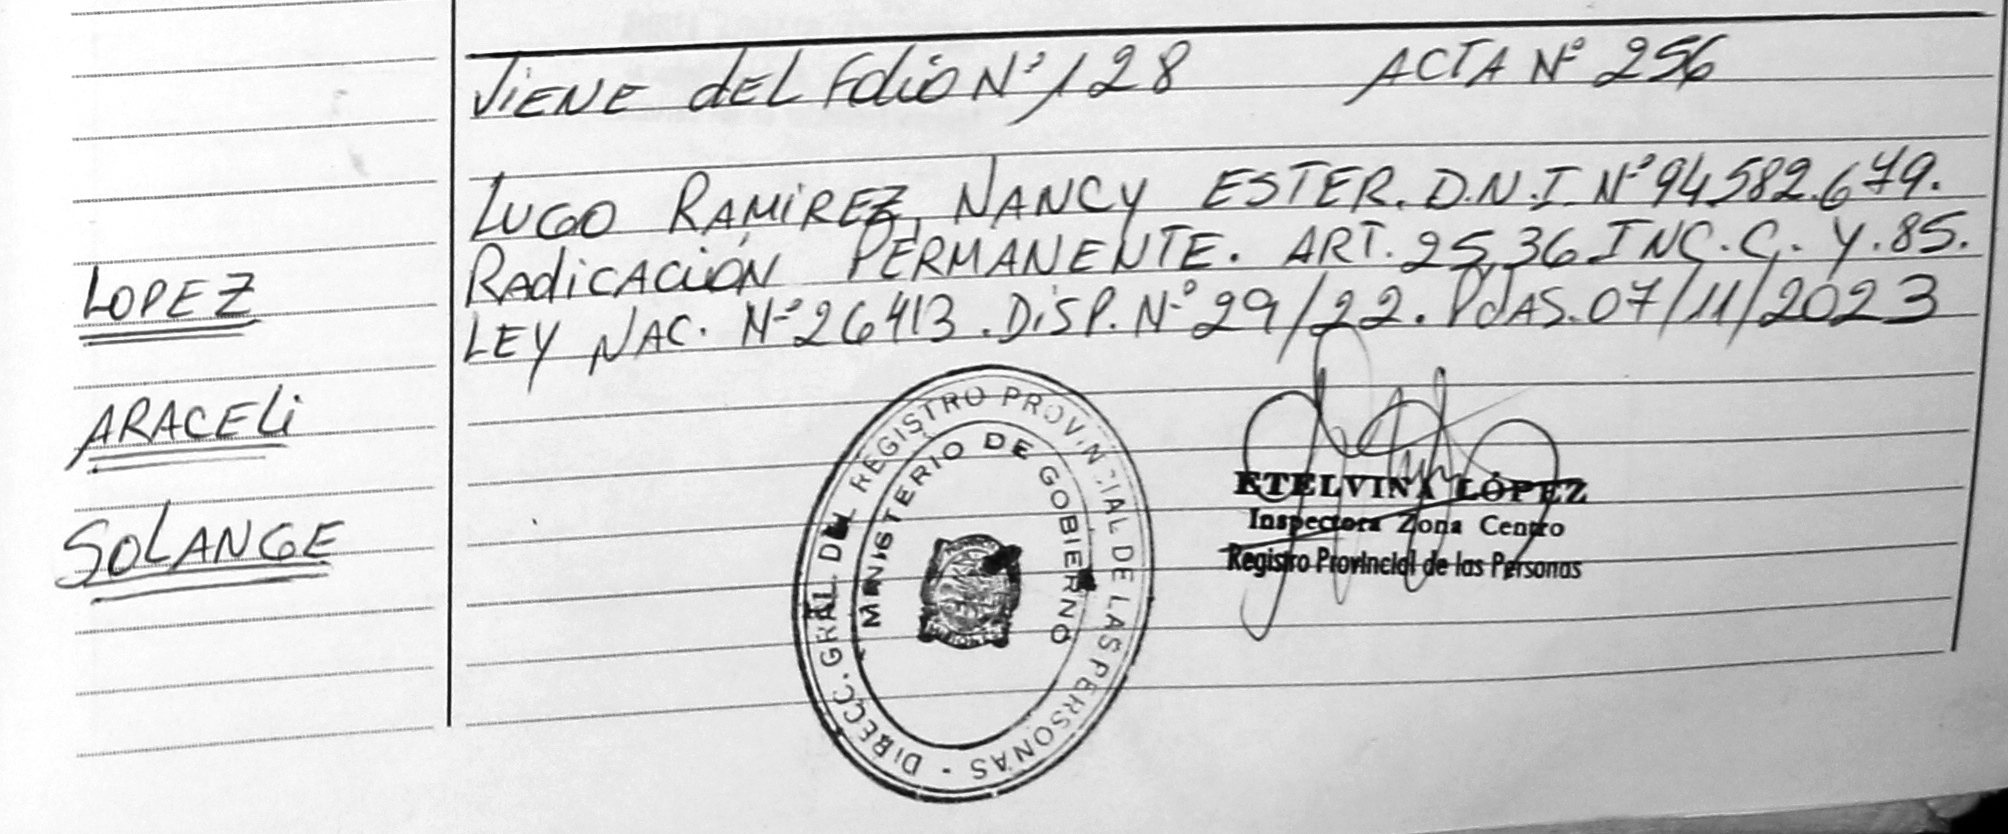 VIENE dEL Folio Nº 128 ACTA Nº 256
LUGO RAMIREZ, NANCY ESTER. D.N.I. Nº 94.582.679.
RAdiCACIÓN PERMANENTE. ART. 25,36 INC. C. Y. 85.
LEY NAC. Nº 26413. DiSP. Nº 29/22. PdAS. 07/11/2023
LOPEZ
ARACELi
SOLANGE
DIRECC. GRAL DEL REGISTRO PROVINCIAL DE LAS PERSONAS -
MINISTERIO DE GOBIERNO
ETELVINA LÓPEZ
Inspectora Zona Centro
Registro Provincial de las Personas